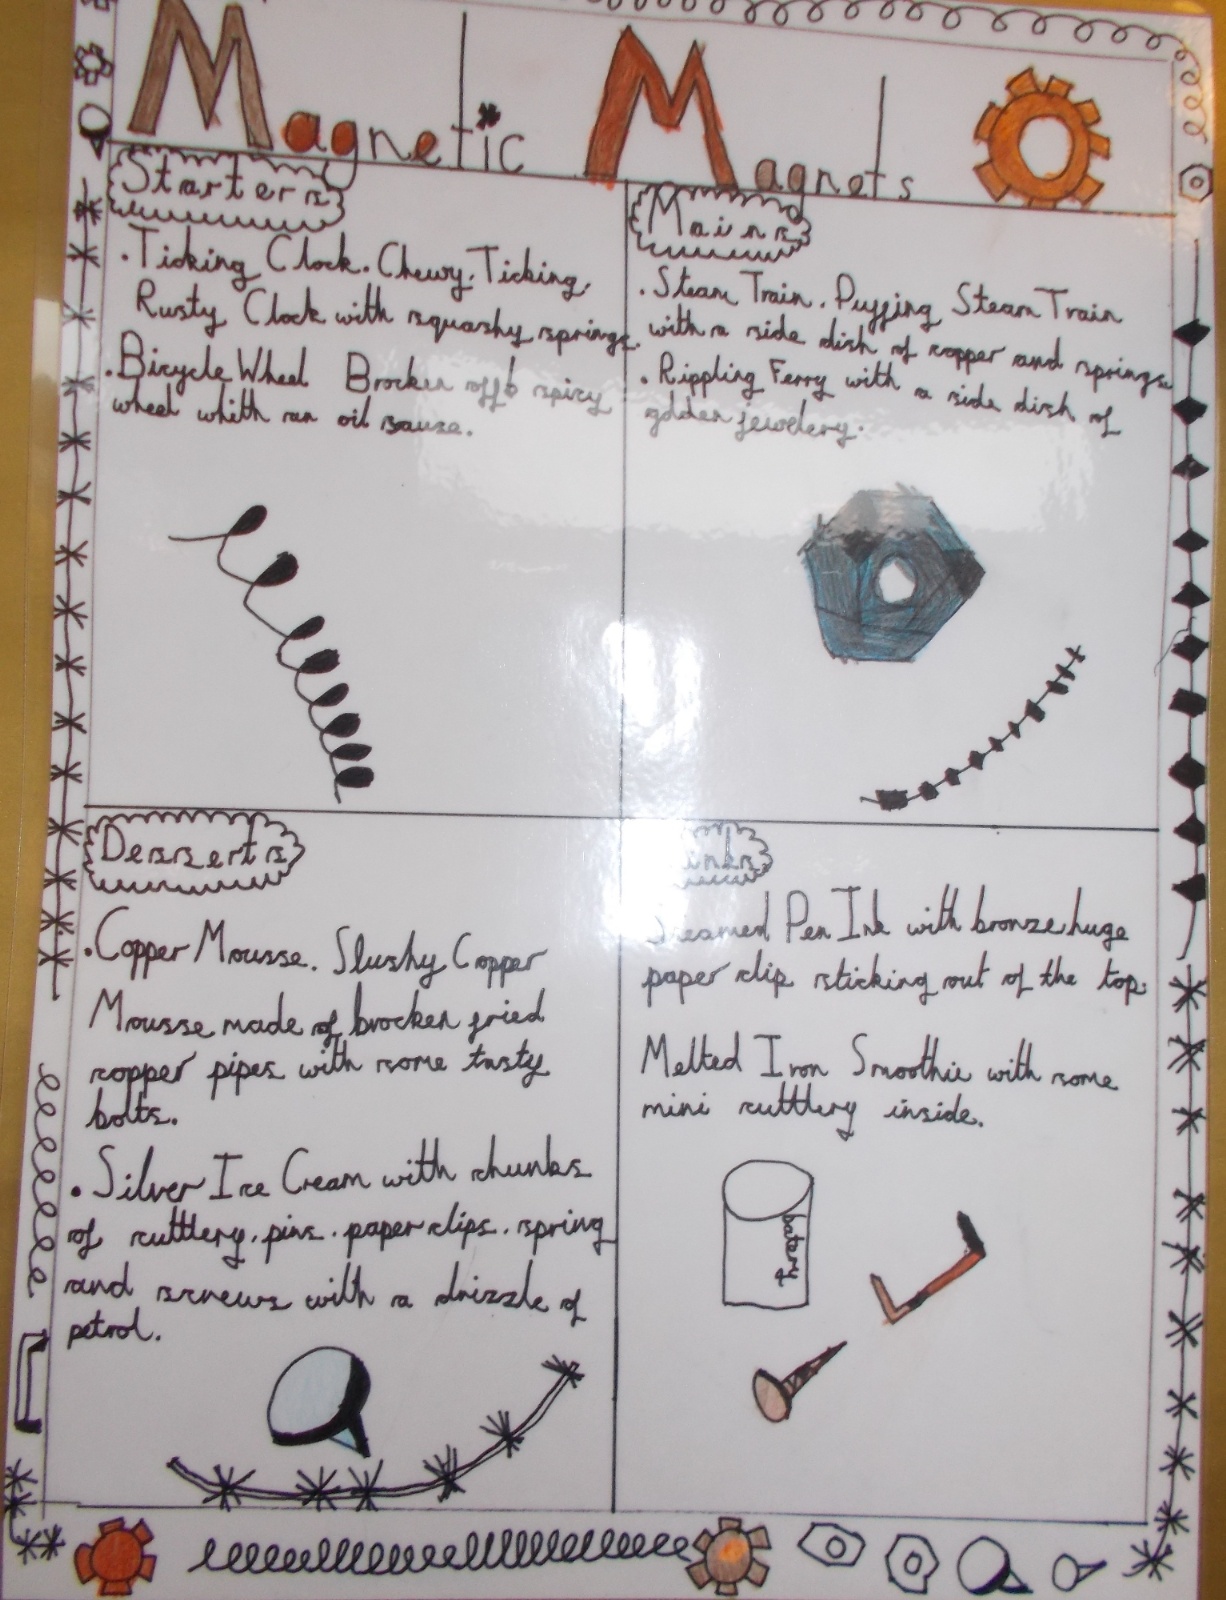 Magnetic Magnets
Starters
.Ticking Clock. Chewy, Ticking,
Rusty Clock with squashy springs.
.Bicycle Wheel Brocken off spicy
wheel whith an oil sause.
Mains
.Steam Train. Puffing Steam Train
with a side dish of copper and springs.
.Rippling Ferry with a side dish of
golden jewelery.
Desserts
.Copper Mousse. Slushy Copper
Mousse made of brocken fried
copper pipes with some tasty
bolts.
.Silver Ice Cream with chunks
of cuttlery, pins, paper clips, spring
and screws with a drizzle of
petrol.
Pen Ink with bronze huge
paper clip sticking out of the top.
Melted Iron Smoothie with some
mini cuttlery inside.
batery